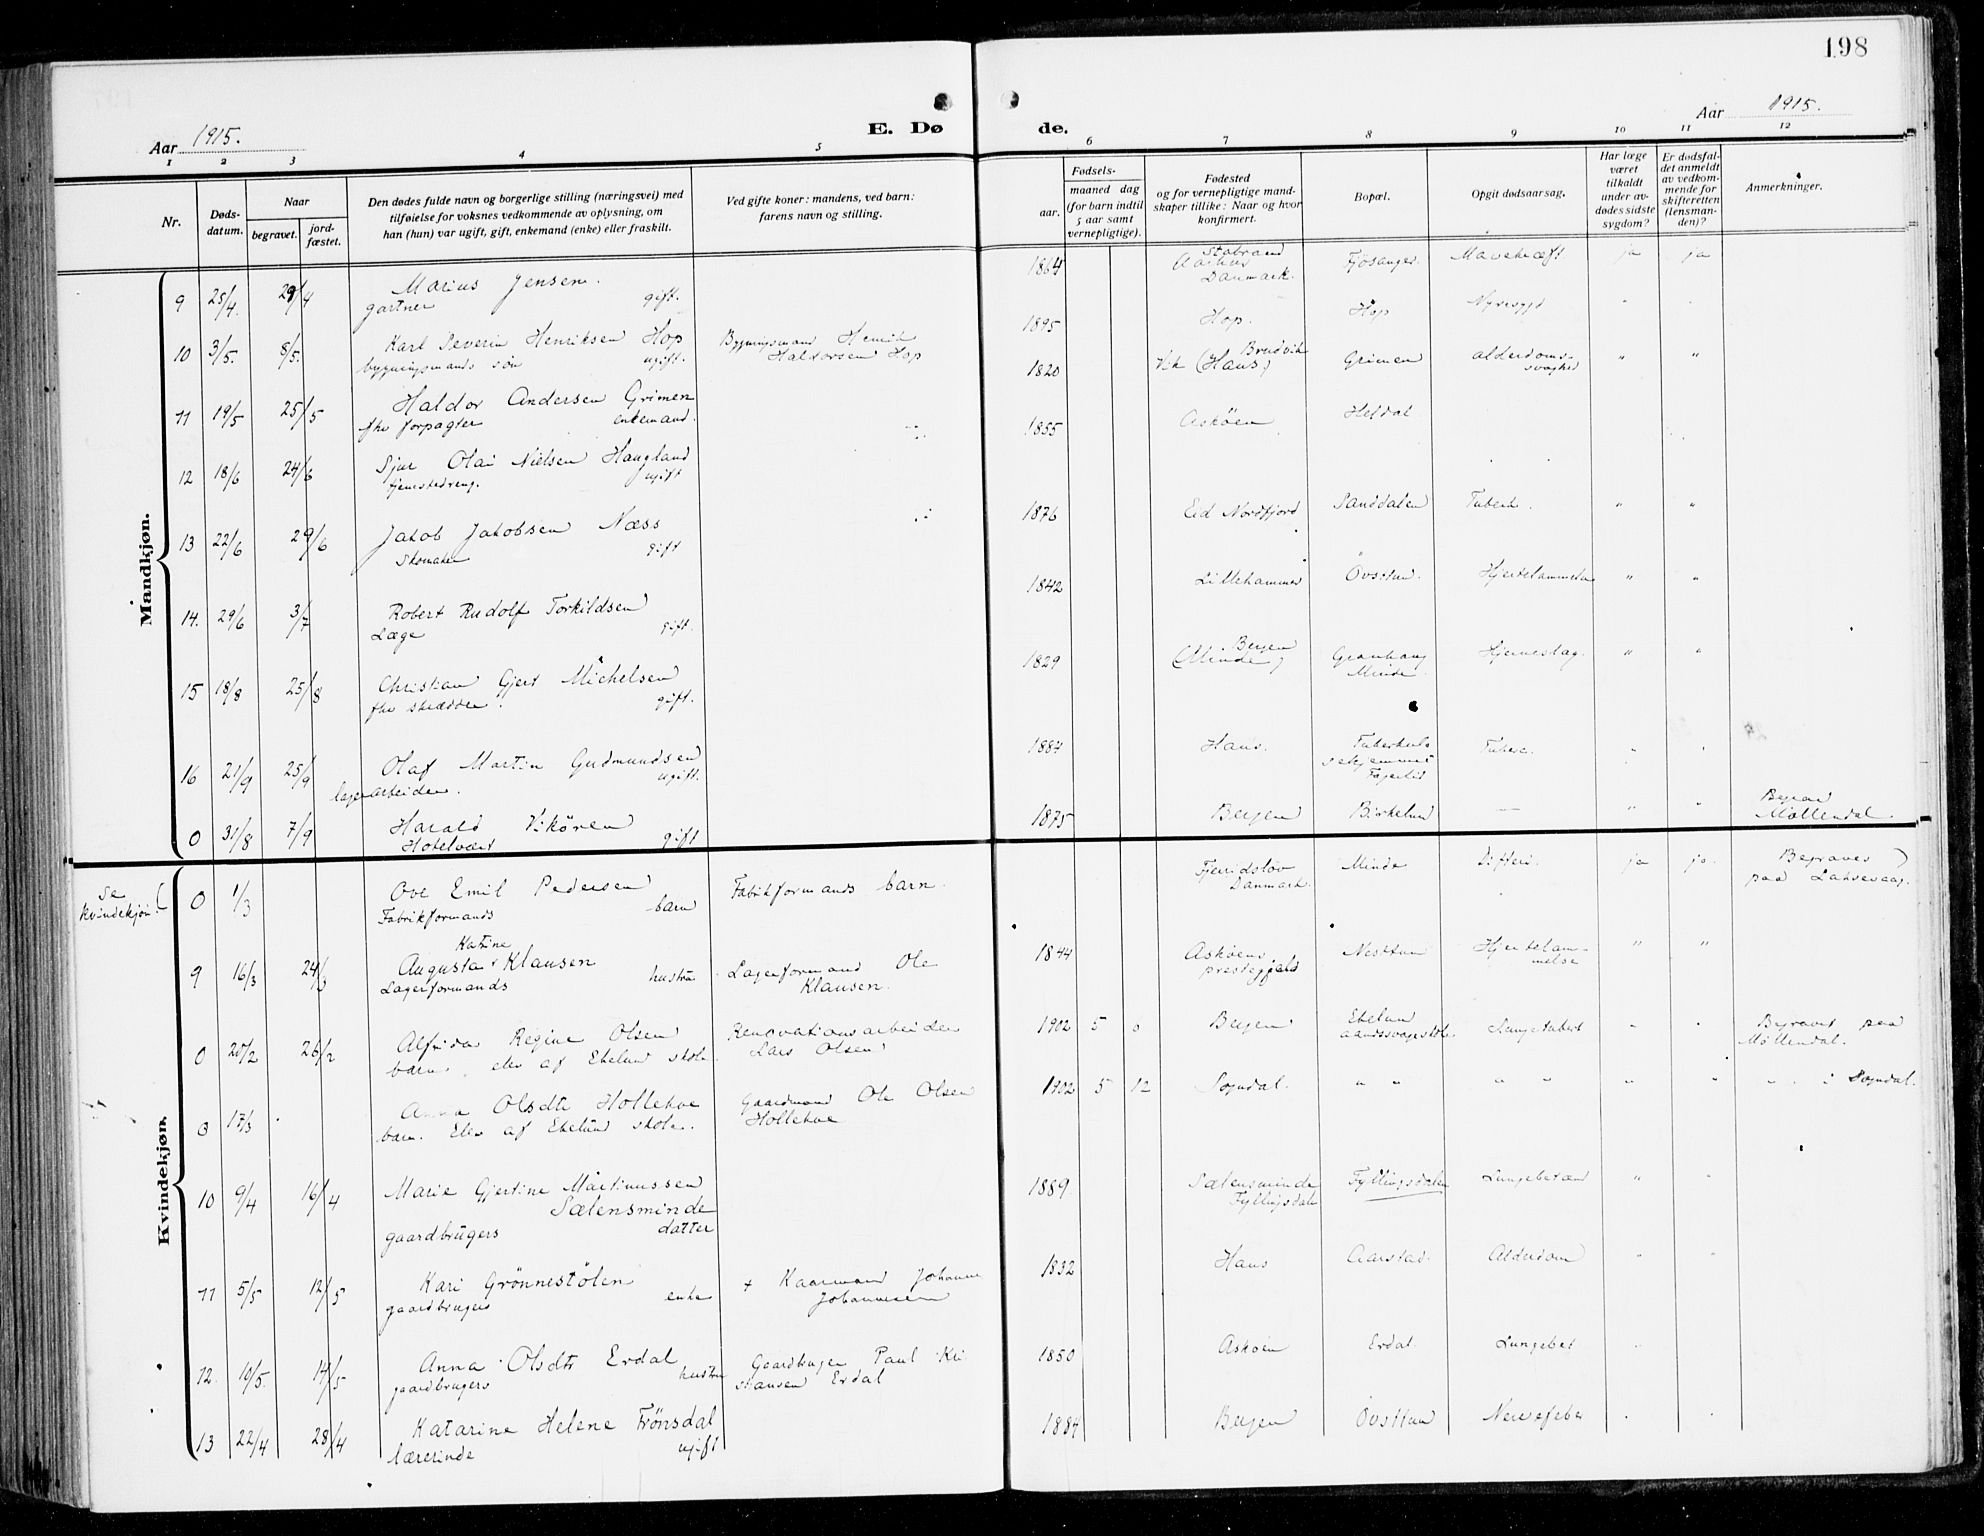 198
Aar 1915.
E. Dø de.
Aar 1915.
1 2 3 4 5 6 7 8 9 10 11 12
Nr.
Døds-
datum.
Naar
begravet.
jord-
fæstet.
Den dødes fulde navn og borgerlige stilling (næringsvei) med
tilføielse for voksnes vedkommende av oplysning, om
han (hun) var ugift, gift, enkemand (enke) eller fraskilt.
Ved gifte koner: mandens, ved barn:
farens navn og stilling.
Fødsels-
aar.
maaned dag
(for barn indtil
5 aar samt
vernepligtige).
Fødested
og for vernepligtige mand-
skaper tillike: Naar og hvor
konfirmert.
Bopæl.
Opgit dødsaarsag.
Har læge
været
tilkaldt
under av-
dødes sidste
sygdom?
Er dødsfal-
det anmeldt
av vedkom-
mende for
skifteretten
(lensman-
den)?
Anmerkninger.
Mandkjøn.
9 25/4. 29/4 Marius Jensen.
gartner gift.
1864 Aarhus Danmark. Fjøsanger Mavekræft ja ja
10 3/5. 8/5. Karl Severin Henriksen Hop
bygningsmands søn ugift.
Bygningsmand Henrik
Haldorsen Hop
1895 Hop. Hop Nyresygd " "
11 19/5 25/5 Haldor Andersen Grimen
fhv forpagter enkemand.
1820 (Haus) Bruvik Grimen alderdoms-
svaghed " "
12 18/6 24/6 Sjur Olai Nielsen Haugland
tjenestedreng. ugift
1855 Askøen Heldal
13 22/6 29/6 Jakob Jakobsen Næss
Skomaker gift
1876 Eid Nordfjord Sanddalen Tuberk. " "
14. 29/6 3/7 Robert Rudolf Torkildsen
Læge gift.
1842 Lillehammer Øvstun. Hjertelammelse " "
15 18/8 25/8 Christian Gjert Michelsen
fhv skrædder. gift.
1829 Bergen
(Minde) Granhaug
Minde. Hjerneslag. " "
16 21/9 25/9 Olaf Martin Gudmundsen
lagerarbeider. ugift.
1884 Haus. Tuberkulo
sehjemmet
Fagerlid Tuberc. " "
0 31/8 7/9 Harald Vikören
Hotelvært gift
1875 Bergen Birkelund — " " Begrav
Møllendal.
Kvindekjøn.
se
kvindekjøn! ( 0 1/3 Ove Emil Pedersen
Fabrikformands barn
Fabrikformands barn.
Danmark. Minde Difteri. ja ja. Begraves )
paa Laksevaag.
9 16/3 24/3 Katrine
Augusta v Klausen
Lagerformands hustru
Lagerformand Ole
Klausen.
1844 Askøens
prestegjeld Nesttun Hjertelam-
melse " "
0 20/2 26/2 Alfrida Regine Olsen
barn, elev af Ekelund skole.
Renovationsarbeider
Lars Olsen
1902 5 6 Bergen Ekelun
aandssvageskole Lungetuberk " " Begravet paa
Møllendal.
0 17/3 Anna Olsdtr Hollekve
barn. Elev af Ekelund skole.
Gaardmand Ole Olsen
Hollekve
1902 5 12 Sogndal. " " " " " " " i Sogndal.
10 9/4 16/4 Marie Gjertine Martinussen
Sælensminde
gaardbrugers datter
1889. Sælensminde
Fyllingsdale Fyllingsdalen Lungebetænd " "
11 5/5 12/5 Kari Grønnestølen
gaardbrugers enke
+ Kaarmand Johanne
Johannesen
1832 Haus Aarstad. Alderdom " "
12. 10/5. 14/5 Anna Olsdtr Erdal
gaardbrugers hustru
Gaardbruger Paul Kri
stiansen Erdal
1850 Askøen Erdal. Lungebet "
13 22/4 28/4 Katarine Helene Frönsdal
lærerinde ugift
1884 Bergen Øvsttun Nervefeber " "